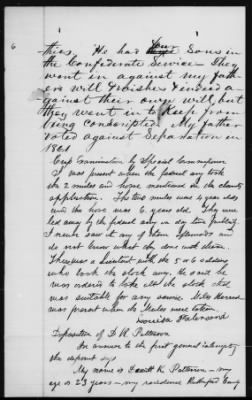 6
thies, He had four Sons in
the Confederate Service They
went in against my Fath-
ers will & wishes & indeed a-
gainst their own will, but
they went in to Keep from
being conscripted My father
voted against Separation in
1861
Cross Examination by Special Commissioner
I was present when the federal army took
the 2 mules and horse mentioned in the claimants
application. The two mules were 4 years old
and the horse was 6 years old. They were
led away by the federal army on day time publicly
I never saw any of them afterwards and
do not know what they done with them.
There was a Lieutenant with the 5 or 6 soldiers
who took the stock away. He said he
was ordered to take all the stock that
was suitable for any service
was present when the Mules were taken.
Louisa
Deposition of D K Patterson
In answer to the first general interrogatory
the deponent says
My name is David K. Patterson – my
age is 23 years – my residence Rutherford County